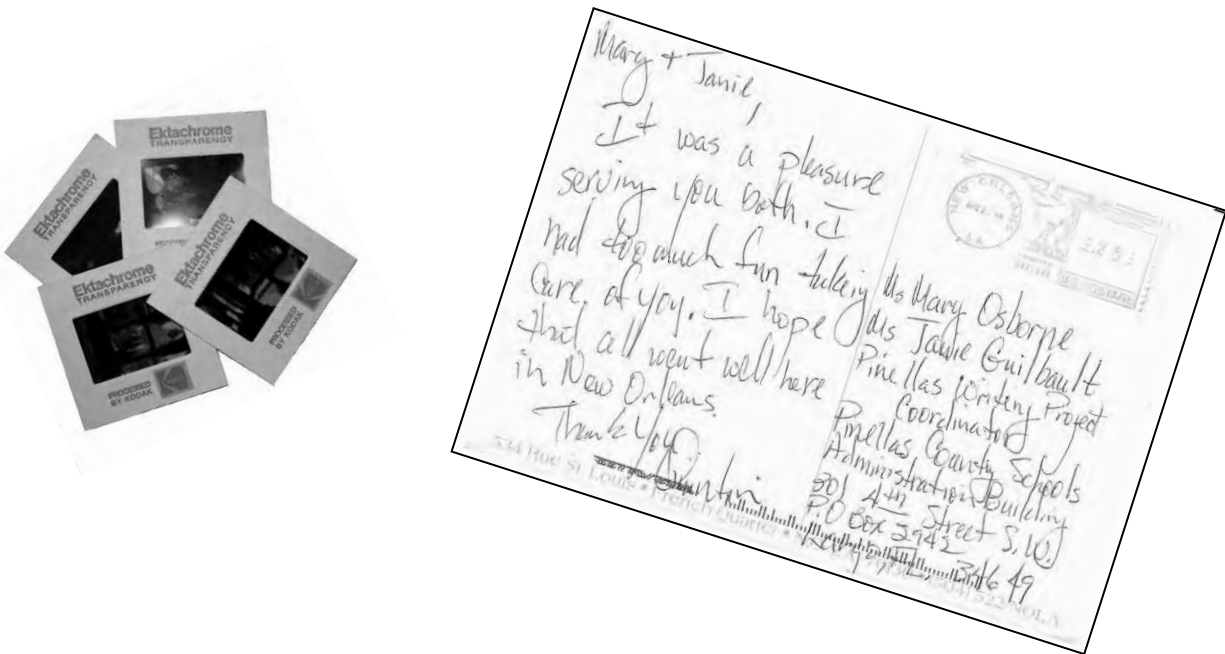 Ektachrome
TRANSPARENCY
Ektachrome
TRANSPARENCY
Ektachrome
TRANSPARENCY
PROCESSED
BY KODAK
Ektachrome
TRANSPARENCY
PROCESSED
BY KODAK
Mary + Janie,
It was a pleasure
serving you both. I
had too much fun taking
Care of you. I hope
that all went well here
in New Orleans.
Thank You.
NEW ORLEANS
LA
Ms Mary Osborne
Ms Janie Guilbault
Pinellas Writing Project
Coordinator
Pinellas County Schools
Administration Building
301 4th Street S.W.
P.O Box 2942
34649
534 Rue St. Louis • French Quarter •
522-NOLA